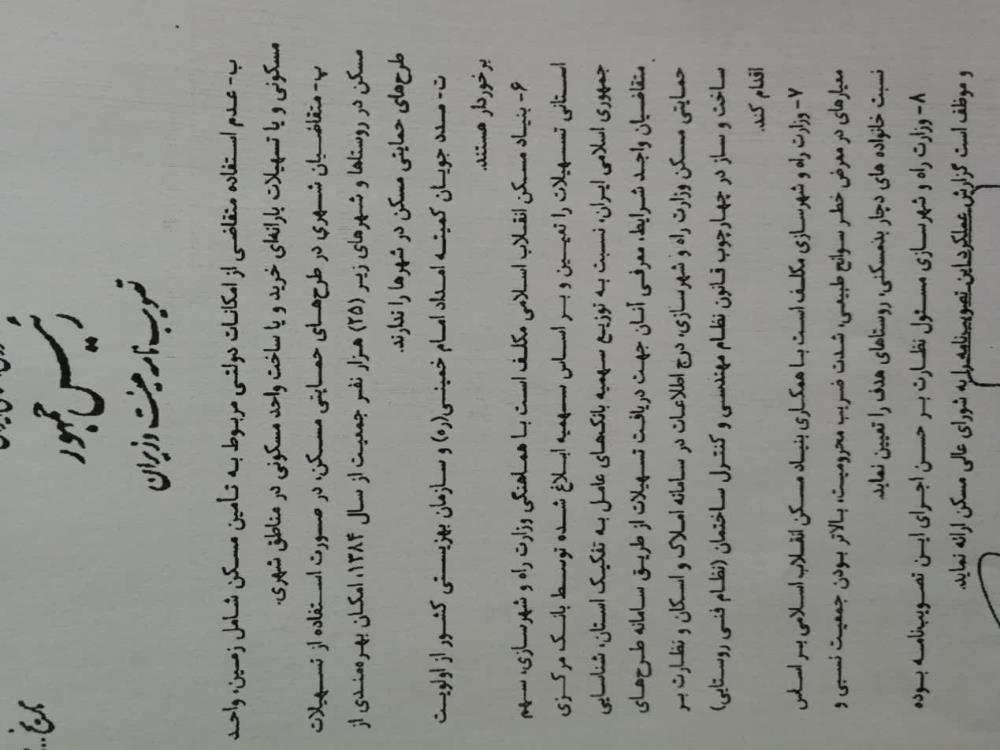 رئیس جمهور
تصویب نامه هیئت وزیران
ب- عدم استفاده متقاضی از امکانات دولتی مربوط به تأمین مسکن شامل زمین، واحد
مسکونی و یا تسهیلات یارانه‌ای خرید و یا ساخت واحد مسکونی در مناطق شهری.
پ- متقاضیان شهری در طرح‌های حمایتی مسکن، در صورت استفاده از تسهیلات
مسکن در روستاها و شهرهای زیر (۲۵) هزار نفر جمعیت از سال ۱۳۸۴، امکان بهره‌مندی از
طرح‌های حمایتی مسکن در شهرها را ندارند.
ت- مدد جویان کمیته امداد امام خمینی(ره) و سازمان بهزیستی کشور از اولویت
برخوردار هستند.
۶- بنیاد مسکن انقلاب اسلامی مکلف است با هماهنگی وزارت راه و شهرسازی، سهم
استانی تسهیلات را تعیین و بر اساس سهمیه ابلاغ شده توسط بانک مرکزی
جمهوری اسلامی ایران، نسبت به توزیع سهمیه بانکهای عامل به تفکیک استان، شناسایی
متقاضیان واجد شرایط، معرفی آنان جهت دریافت تسهیلات از طریق سامانه طرح‌های
حمایتی مسکن وزارت راه و شهرسازی، درج اطلاعات در سامانه املاک و اسکان و نظارت بر
ساخت و ساز در چهارچوب قانون نظام مهندسی و کنترل ساختمان (نظام فنی روستایی)
اقدام کند.
۷- وزارت راه و شهرسازی مکلف است با همکاری بنیاد مسکن انقلاب اسلامی بر اساس
معیارهای در معرض خطر سوانح طبیعی، شدت ضریب محرومیت، بالاتر بودن جمعیت نسبی و
نسبت خانواده های دچار بدمسکنی، روستاهای هدف را تعیین نماید.
۸- وزارت راه و شهرسازی مسئول نظارت بر حسن اجرای این تصویب‌نامه بوده
و موظف است گزارش عملکرد این تصویب‌نامه را به شورای عالی مسکن ارائه نماید.